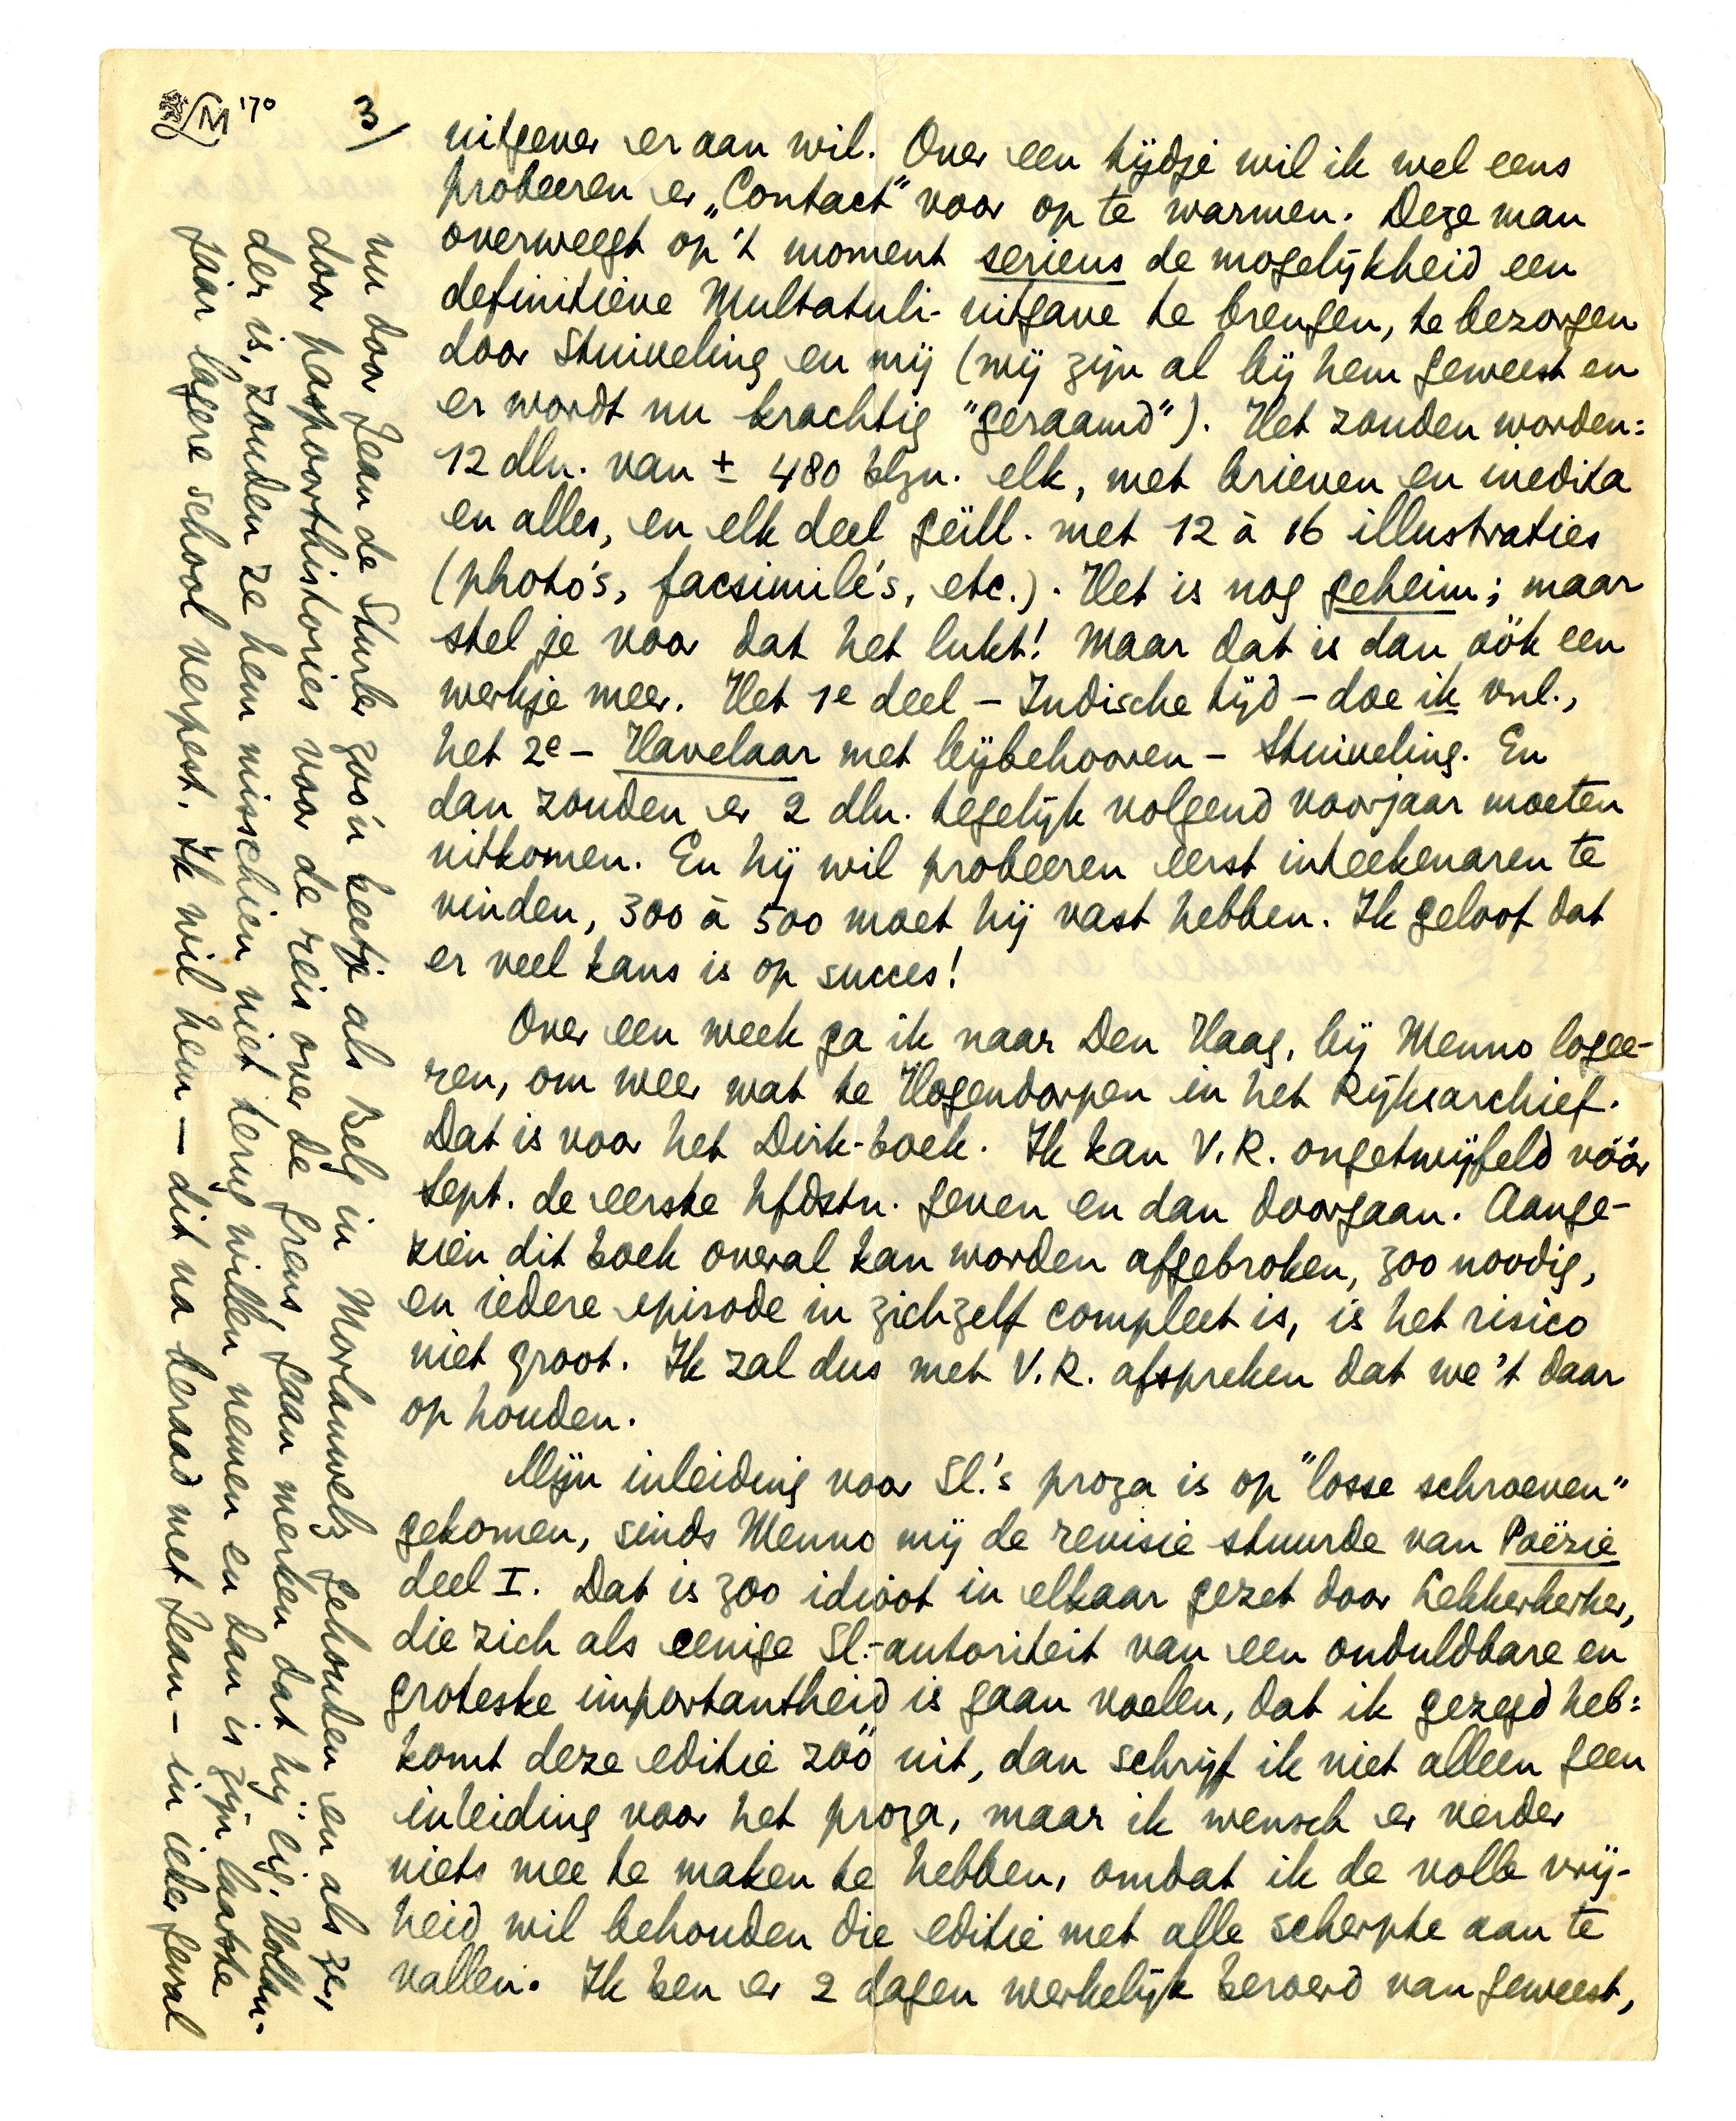 3/
uitgever er aan wil. Over een tijdje wil ik wel eens
probeeren er „Contact” voor op te warmen. Deze man
overweegt op 't moment serieus de mogelijkheid een
definitieve Multatuli-uitgave te brengen, te bezorgen
door Stuiveling en mij (wij zijn al bij hem geweest en
er wordt nu krachtig "geraamd"). Het zouden worden:
12 dln. van ± 480 blzn. elk, met brieven en inedita
en alles, en elk deel geïll. met 12 à 16 illustraties
(photo's, facsimilé's, etc.). Het is nog geheim; maar
stel je voor dat het lukt! Maar dat is dan óók een
werkje meer. Het 1e deel – Indische tijd – doe ik vnl.,
het 2e – Havelaar met bijbehooren – Stuiveling. En
dan zouden er 2 dln. tegelijk volgend voorjaar moeten
uitkomen. En hij wil probeeren eerst inteekenaren te
vinden, 300 à 500 moet hij vast hebben. Ik geloof dat
er veel kans is op succes!
Over een week ga ik naar Den Haag, bij Menno logee-
ren, om weer wat te Hogendorpen in het Rijksarchief.
Dat is voor het Dirk-boek. Ik kan V.R. ongetwijfeld vóór
Sept. de eerste hfdstn. geven en dan doorgaan. Aange-
zien dit boek overal kan worden afgebroken, zoo noodig,
en iedere episode in zichzelf compleet is, is het risico
niet groot. Ik zal dus met V.R. afspreken dat we 't daar
op houden.
Mijn inleiding voor Sl.'s proza is op "losse schroeven"
gekomen, sinds Menno mij de revisie stuurde van Poëzie
deel I. Dat is zoo idioot in elkaar gezet door Lekkerkerker,
die zich als eenige Sl.-autoriteit van een onduldbare en
groteske importantheid is gaan voelen, dat ik gezegd heb:
komt deze editie zóó uit, dan schrijf ik niet alleen geen
inleiding voor het proza, maar ik wensch er verder
niets mee te maken te hebben, omdat ik de volle vrij-
heid wil behouden die editie met alle scherpte aan te
vallen. Ik ben er 2 dagen werkelijk beroerd van geweest,
nu door Jean de Sturler zoo'n beetje als Belg in Morlanwelz gehouden en als ze,
door paspoorthistories voor de reis over de grens, gaan merken dat hij eig. Hollan-
der is, zouden ze hem misschien niet terug willen nemen en dan is zijn laatste
jaar lagere school verpest. Ik wil hem — dit na beraad met Jean – in ieder geval
M '70